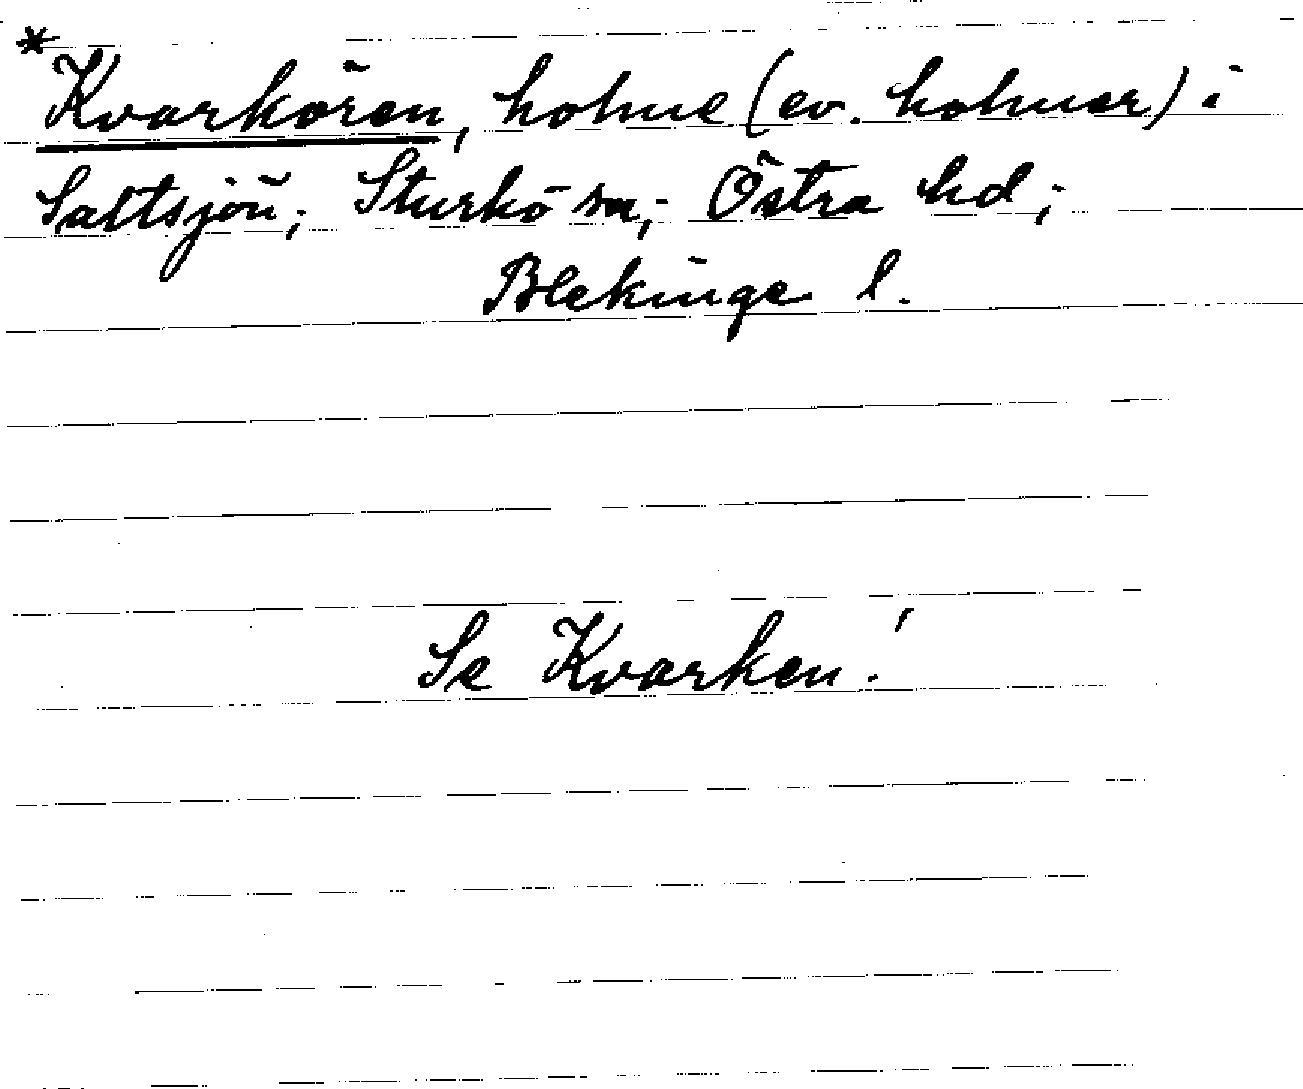 *Kvarkören, holme (ev. holmar) i
Saltsjön; Sturkö sn; Östra hd;
Blekinge l.
Se Kvarken!